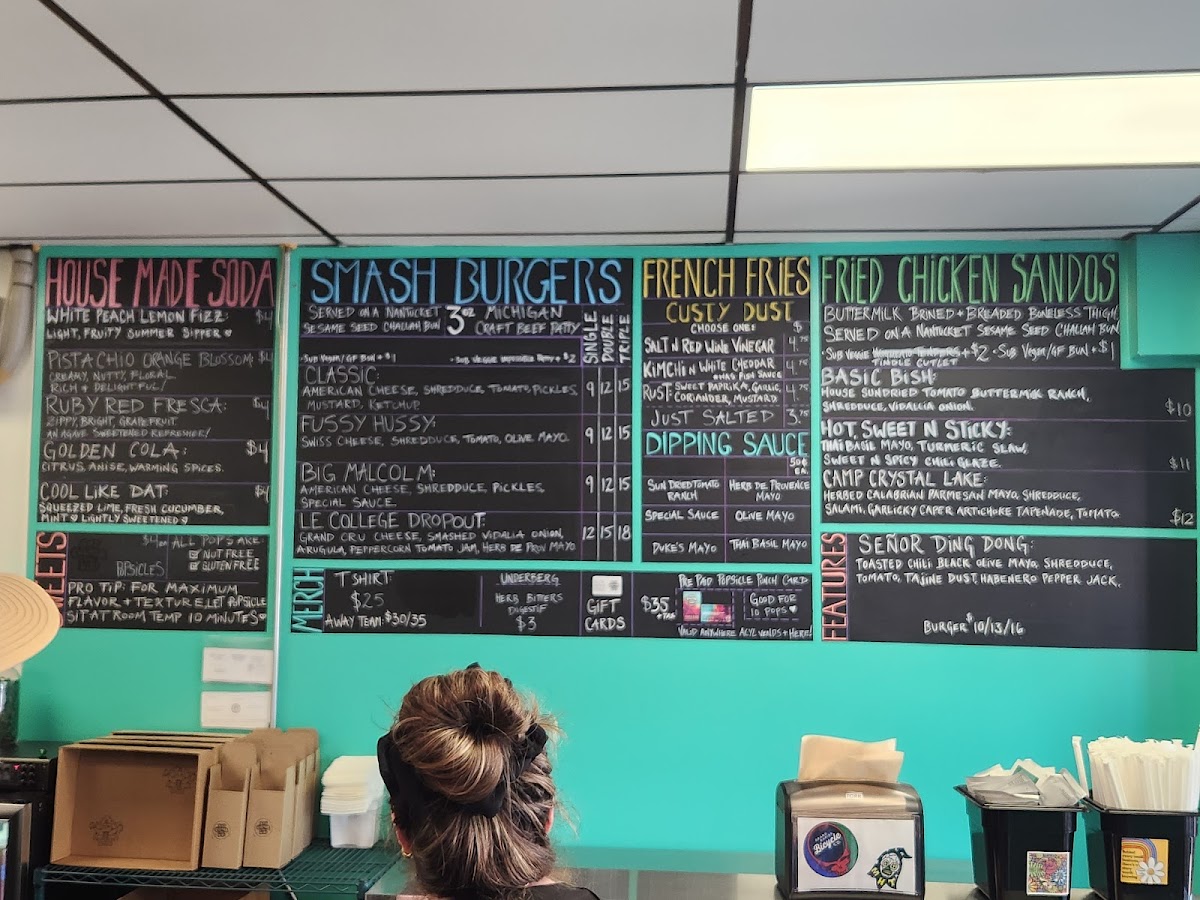 HOUSE MADE SODA
WHITE PEACH LEMON FIZZ: $4
LIGHT, FRUITY SUMMER SIPPER ♡
PISTACHIO ORANGE BLOSSOM $4
CREAMY, NUTTY, FLORAL
RICH + DELIGHTFUL!
RUBY RED FRESCA: $4
ZIPPY, BRIGHT, GRAPEFRUIT
AN AGAVE SWEETENED REFRESHER!
GOLDEN COLA: $4
CITRUS, ANISE, WARMING SPICES.
COOL LIKE DAT: $4
SQUEEZED LIME, FRESH CUCUMBER,
MINT ♡ LIGHTLY SWEETENED ♡
SWEETS
ALL POPS ARE:
NUT FREE
POPSICLES
GLUTEN FREE
PRO TIP: FOR MAXIMUM
FLAVOR + TEXTURE, LET POPSICLE
SIT AT ROOM TEMP 10 MINUTES ♡
SMASH BURGERS
SERVED ON A NANTUCKET
SESAME SEED CHALLAH BUN
3oz MICHIGAN
CRAFT BEEF PATTY
• SUB VEGAN/GF BUN + $1
• SUB VEGGIE + $2
SINGLE
DOUBLE
TRIPLE
CLASSIC:
AMERICAN CHEESE, SHREDDUCE, TOMATO, PICKLES, 9 12 15
MUSTARD, KETCHUP
FUSSY HUSSY:
SWISS CHEESE, SHREDDUCE, TOMATO, OLIVE MAYO. 9 12 15
BIG MALCOLM:
AMERICAN CHEESE, SHREDDUCE, PICKLES, 9 12 15
SPECIAL SAUCE.
LE COLLEGE DROPOUT:
GRAND CRU CHEESE, SMASHED VIDALIA ONION, 12 15 18
ARUGULA, PEPPERCORN TOMATO JAM, HERB DE PROV MAYO
MERCH
T SHIRT
$25
AWAY TEAM: $30/35
UNDERBERG
HERB BITTERS
DIGESTIF
$3
GIFT
CARDS
PRE PAID POPSICLE PUNCH CARD
$35
+TAX
GOOD FOR
10 POPS ♡
VALID ANYWHERE ACYZ VENDS + HERE!
FRENCH FRIES
CUSTY DUST
CHOOSE ONE: $
SALT N RED WINE VEGAR 4.75
KIMCHI N WHITE CHEDDAR 4.75
RUST: SWEET PAPRIKA, GARLIC, 4.75
CORIANDER, MUSTARD
JUST SALTED 3.75
DIPPING SAUCE
50¢
EA.
SUN DRIED TOMATO
RANCH
HERB DE PROVENCE
MAYO
SPECIAL SAUCE
OLIVE MAYO
DUKE'S MAYO
THAI BASIL MAYO
FRIED CHICKEN SANDOS
BUTTERMILK BRINED + BREADED BONELESS THIGH
SERVED ON A NANTUCKET SESAME SEED CHALLAH BUN
• SUB VEGGIE + $2 • SUB VEGAN/GF BUN + $1
TINDLE CUTLET
BASIC BISH:
HOUSE SUNDRIED TOMATO BUTTERMILK RANCH,
SHREDDUCE, VIDALLIA ONION. $10
HOT, SWEET N STICKY:
THAI BASIL MAYO, TURMERIC SLAW,
SWEET N SPICY CHILI GLAZE. $11
CAMP CRYSTAL LAKE:
HERBED CALABRIAN PARMESAN MAYO, SHREDDUCE,
SALAMI, GARLICKY CAPER ARTICHOKE TAPENADE, TOMATO. $12
FEATURES
SEÑOR DING DONG:
TOASTED CHILI BLACK OLIVE MAYO, SHREDDUCE,
TOMATO, TAJINE DUST, HABENERO PEPPER JACK.
BURGER $10/13/16
Bicycle